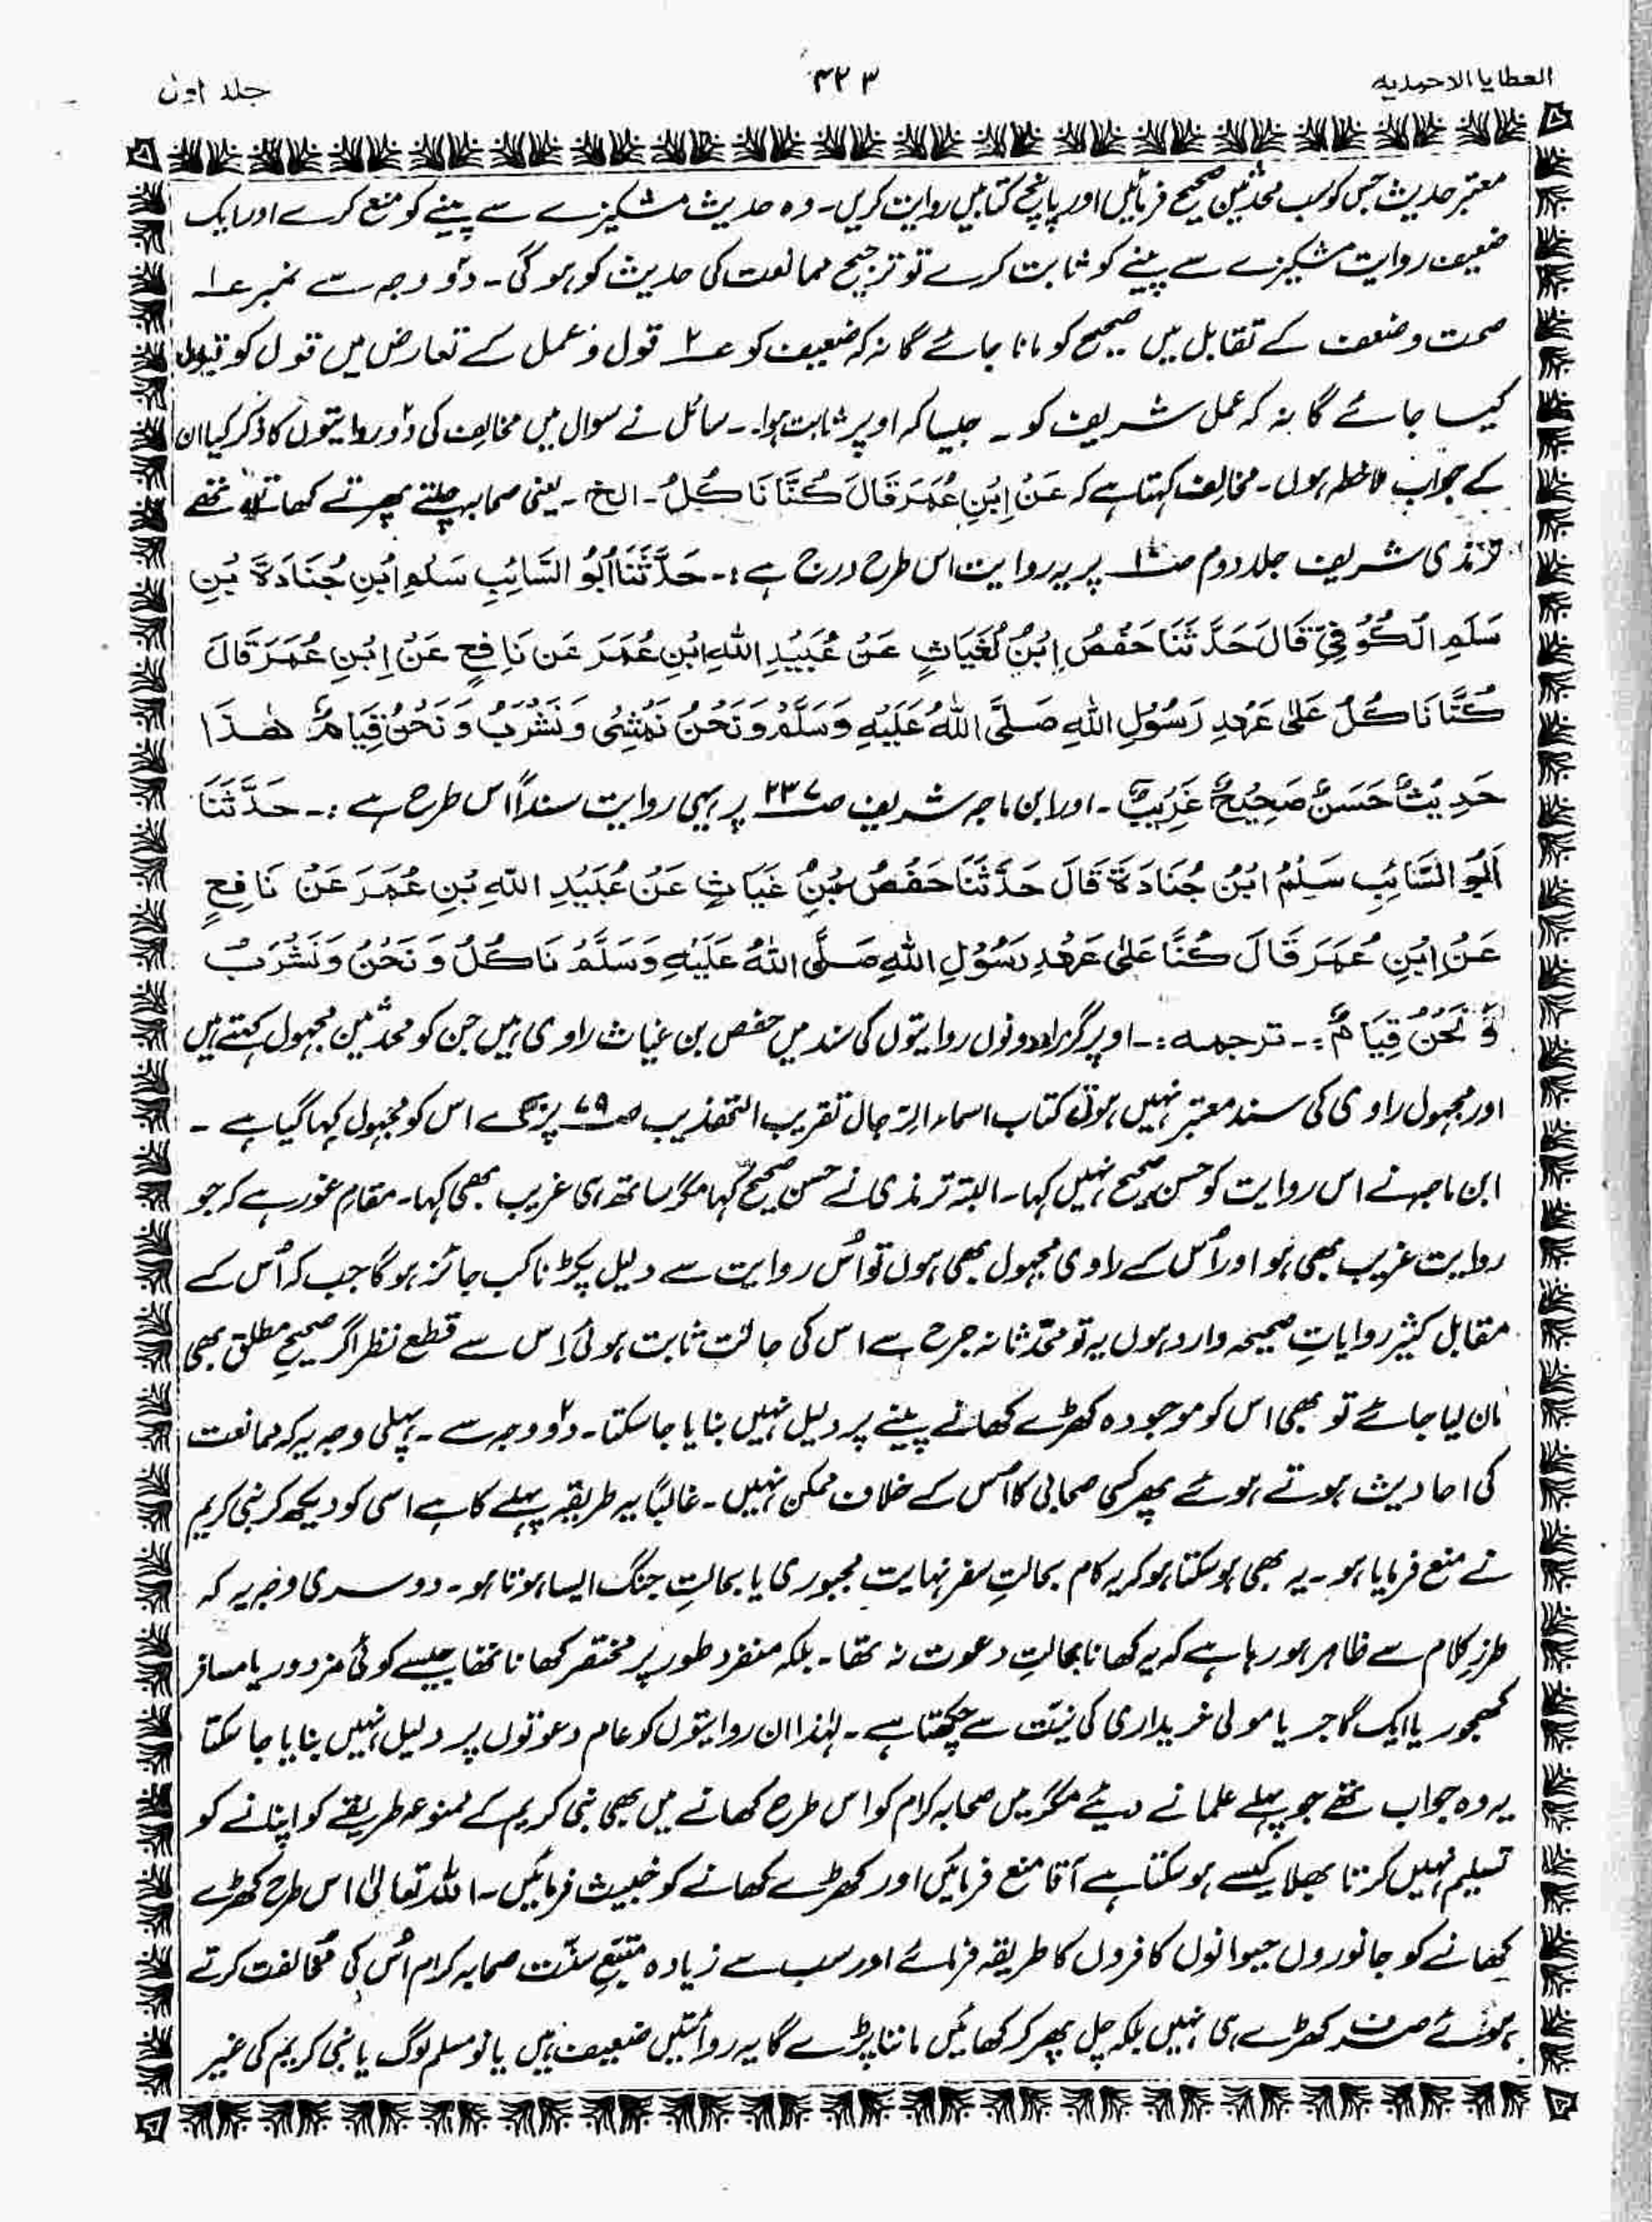 العطایا الاحمدیہ
۳۲۳
جلد اول
معتبر حدیث جس کو سب محدثین صحیح فرمائیں اور پانچ کتابیں روایت کریں۔ وہ حدیث مشکیزے سے پینے کو منع کرے اور ایک
ضعیف روایت مشکیزے سے پینے کو ثابت کرے تو ترجیح ممانعت کی حدیث کو ہو گی۔ دو وجہ سے نمبر ۱
صحت و ضعف کے تقابل میں صحیح کو مانا جائے گا نہ کہ ضعیف کو ۲ قول و عمل کے تعارض میں قول کو قبول
کیا جائے گا نہ کہ عمل شریف کو ۔ جیسا کہ اوپر ثابت ہوا۔ سائل نے سوال میں مخالف کی دو روایتوں کا ذکر کیا ان
کے جواب ملاحظہ ہوں۔ مخالف کہتا ہے کہ عَنْ اِبْنِ عُمَرَ قَالَ كُنَّا نَاكُلُ۔ الخ۔ یعنی صحابہ چلتے پھرتے کھاتے تھے
ترمذی شریف جلد دوم صـ۱ پر یہ روایت اس طرح درج ہے :۔ حَدَّثَنَا اَبُو السَّائِبِ سَلْمِ ابْنِ جُنَادَةَ بْنِ
سَلَمِ الْكُوْفِيِّ قَالَ حَدَّثَنَا حَفْصُ ابْنُ غَيَاثٍ عَنْ عُبَيْدِ اللهِ ابْنِ عُمَرَ عَن نَافِعٍ عَنْ اِبْنِ عُمَرَ قَالَ
كُنَّا نَاكُلُ عَلىٰ عَهْدِ رَسُوْلِ اللهِ صَلَّى اللهُ عَلَيْهِ وَسَلَّمْ وَنَحْنُ نَمْشِىْ وَنَشْرَبُ وَنَحْنُ قِيَامٌ هٰذَا
حَدِيْثٌ حَسَنٌ صَحِيْحٌ غَرِيْبٌ۔ اور ابن ماجہ شریف صـ۲۳۷ پر یہی روایت سنداً اس طرح ہے :۔ حَدَّثَنَا
اَبُو السَّائِبِ سَلْمُ ابْنُ جُنَادَةَ قَالَ حَدَّثَنَا حَفْصُ بْنُ غَيَاثٍ عَنْ عُبَيْدِ اللهِ بْنِ عُمَرَ عَنْ نَافِعٍ
عَنْ اِبْنِ عُمَرَ قَالَ كُنَّا عَلىٰ عَهْدِ رَسُوْلِ اللهِ صَلَّى اللهُ عَلَيْهِ وَسَلَّمْ نَاكُلُ وَنَحْنُ وَنَشْرَبُ
وَنَحْنُ قِيَامٌ :۔ ترجمہ :۔ اوپر گزرا۔ دونوں روایتوں کی سند میں حفص بن غیاث راوی ہیں جن کو محدثین مجہول کہتے ہیں
اور مجہول راوی کی سند معتبر نہیں ہوتی کتاب اسماء الرّجال تقریب التھذیب صـ۷۹ پر اس کو مجہول کہا گیا ہے ۔
ابن ماجہ نے اس روایت کو حسن صحیح نہیں کہا۔ البتہ ترمذی نے حسن صحیح کہا مگر ساتھ ہی غریب بھی کہا۔ مقامِ غور ہے کہ جو
روایت غریب بھی ہو اور اُس کے راوی مجہول بھی ہوں تو اُس روایت سے دلیل پکڑنا کب جائز ہو گا جب کہ اُس کے
مقابل کثیر روایاتِ صحیحہ وارد ہوں یہ تو محدّثانہ جرح سے اس کی حالت ثابت ہوئی اِس سے قطع نظر اگر صحیح مطلق بھی
مان لیا جائے تو بھی اس کو موجودہ کھڑے کھانے پینے پر دلیل نہیں بنایا جا سکتا۔ دو وجہ سے ۔ پہلی وجہ یہ کہ ممانعت
کی احادیث ہوتے ہوئے پھر کسی صحابی کا اس کے خلاف ممکن نہیں۔ غالباً یہ طریقہ پہلے کا ہے اسی کو دیکھ کر نبی کریم
نے منع فرمایا ہو ۔ یہ بھی ہو سکتا ہو کہ یہ کام بحالتِ سفر نہایت مجبوری یا بحالتِ جنگ ایسا ہوتا ہو۔ دوسری وجہ یہ کہ
طرزِ کلام سے ظاہر ہو رہا ہے کہ یہ کھانا بحالتِ دعوت نہ تھا۔ بلکہ منفرد طور پر مختصر کھانا تھا جیسے کوئی مزدور یا مسافر
کھجور یا ایک گاجر یا مولی خریداری کی نیّت سے چکھتا ہے ۔ لہٰذا ان روایتوں کو عام دعوتوں پر دلیل نہیں بنایا جا سکتا
یہ وہ جواب تھے جو پہلے علما نے دیئے مگر میں صحابہ کرام کو اس طرح کھانے میں بھی نبی کریم کے ممنوعہ طریقے کو اپنانے کو
تسلیم نہیں کرتا بھلا یہ کیسے ہو سکتا ہے آقا منع فرمائیں اور کھڑے کھانے کو خبیث فرمائیں ۔ اللہ تعالیٰ اس طرح کھڑے
کھانے کو جانوروں حیوانوں کافروں کا طریقہ فرمائے اور سب سے زیادہ متبعِ سنّت صحابہ کرام اُس کی مخالفت کرتے
ہوئے صرف کھڑے ہی نہیں بلکہ چل پھر کر کھائیں ماننا پڑے گا یہ روائتیں ضعیف ہیں یا نو مسلم لوگ یا نبی کریم کی غیر